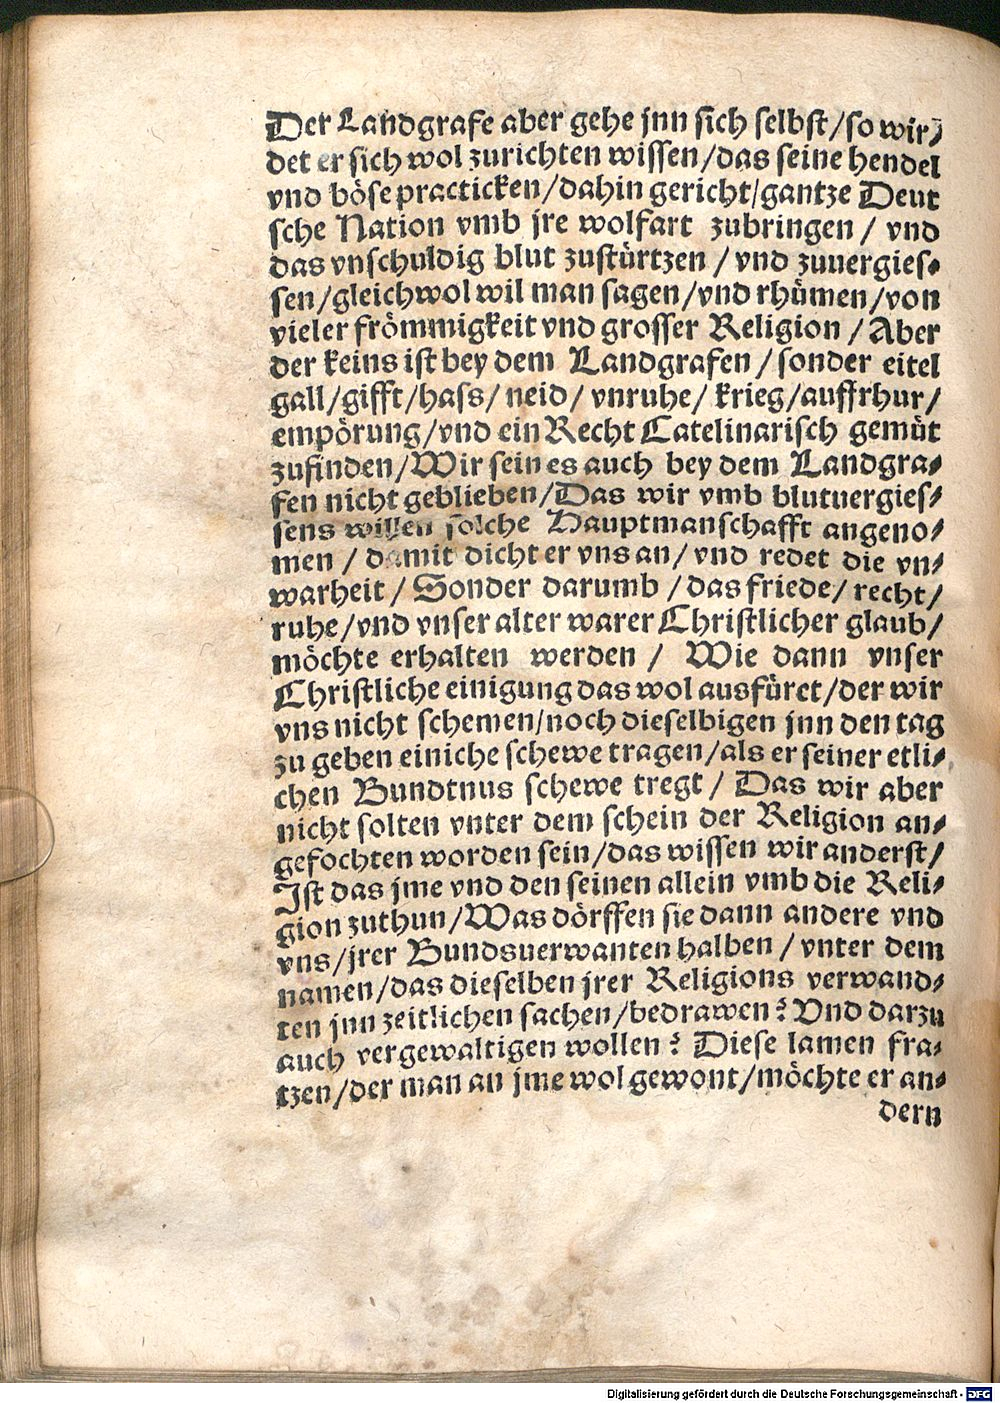 Der Landgrafe aber gehe jnn sich selbst/so wir⸗
det er sich wol zurichten wissen/das seine hendel
vnd böse practicken/dahin gericht/gantze Deut
sche Nation vmb jre wolfart zubringen / vnd
das vnschuldig blut zustürtzen / vnd zuuergies⸗
sen/gleichwol wil man sagen/vnd rhümen/von
vieler frömmigkeit vnd grosser Religion / Aber
der keins ist bey dem Landgrafen / sonder eitel
gall/gifft/hass/ neid/ vnruhe/ krieg/auffrhur/
empörung/vnd ein Recht Catelinarisch gemüt
zufinden/Wir sein es auch bey dem Landgra⸗
fen nicht geblieben/Das wir vmb blutuergies⸗
sens willen solche Hauptmanschafft angeno⸗
men / damit dicht er vns an/ vnd redet die vn⸗
warheit / Sonder darumb / das friede/ recht/
ruhe/vnd vnser alter warer Christlicher glaub/
möchte erhalten werden / Wie dann vnser
Christliche einigung das wol ausfüret/der wir
vns nicht schemen/noch dieselbigen jnn den tag
zu geben einiche schewe tragen/als er seiner etli⸗
chen Bundtnus schewe tregt / Das wir aber
nicht solten vnter dem schein der Religion an⸗
gefochten worden sein/das wissen wir anderst/
Ist das jme vnd den seinen allein vmb die Reli⸗
gion zuthun/Was dörffen sie dann andere vnd
vns/jrer Bundsuerwanten halben / vnter dem
namen/das dieselben jrer Religions verwand⸗
ten jnn zeitlichen sachen/bedrawen? Vnd darzu
auch vergewaltigen wollen? Diese lamen fra⸗
tzen/der man an jme wol gewont/möchte er an⸗
dern
Digitalisierung gefördert durch die Deutsche Forschungsgemeinschaft - DFG